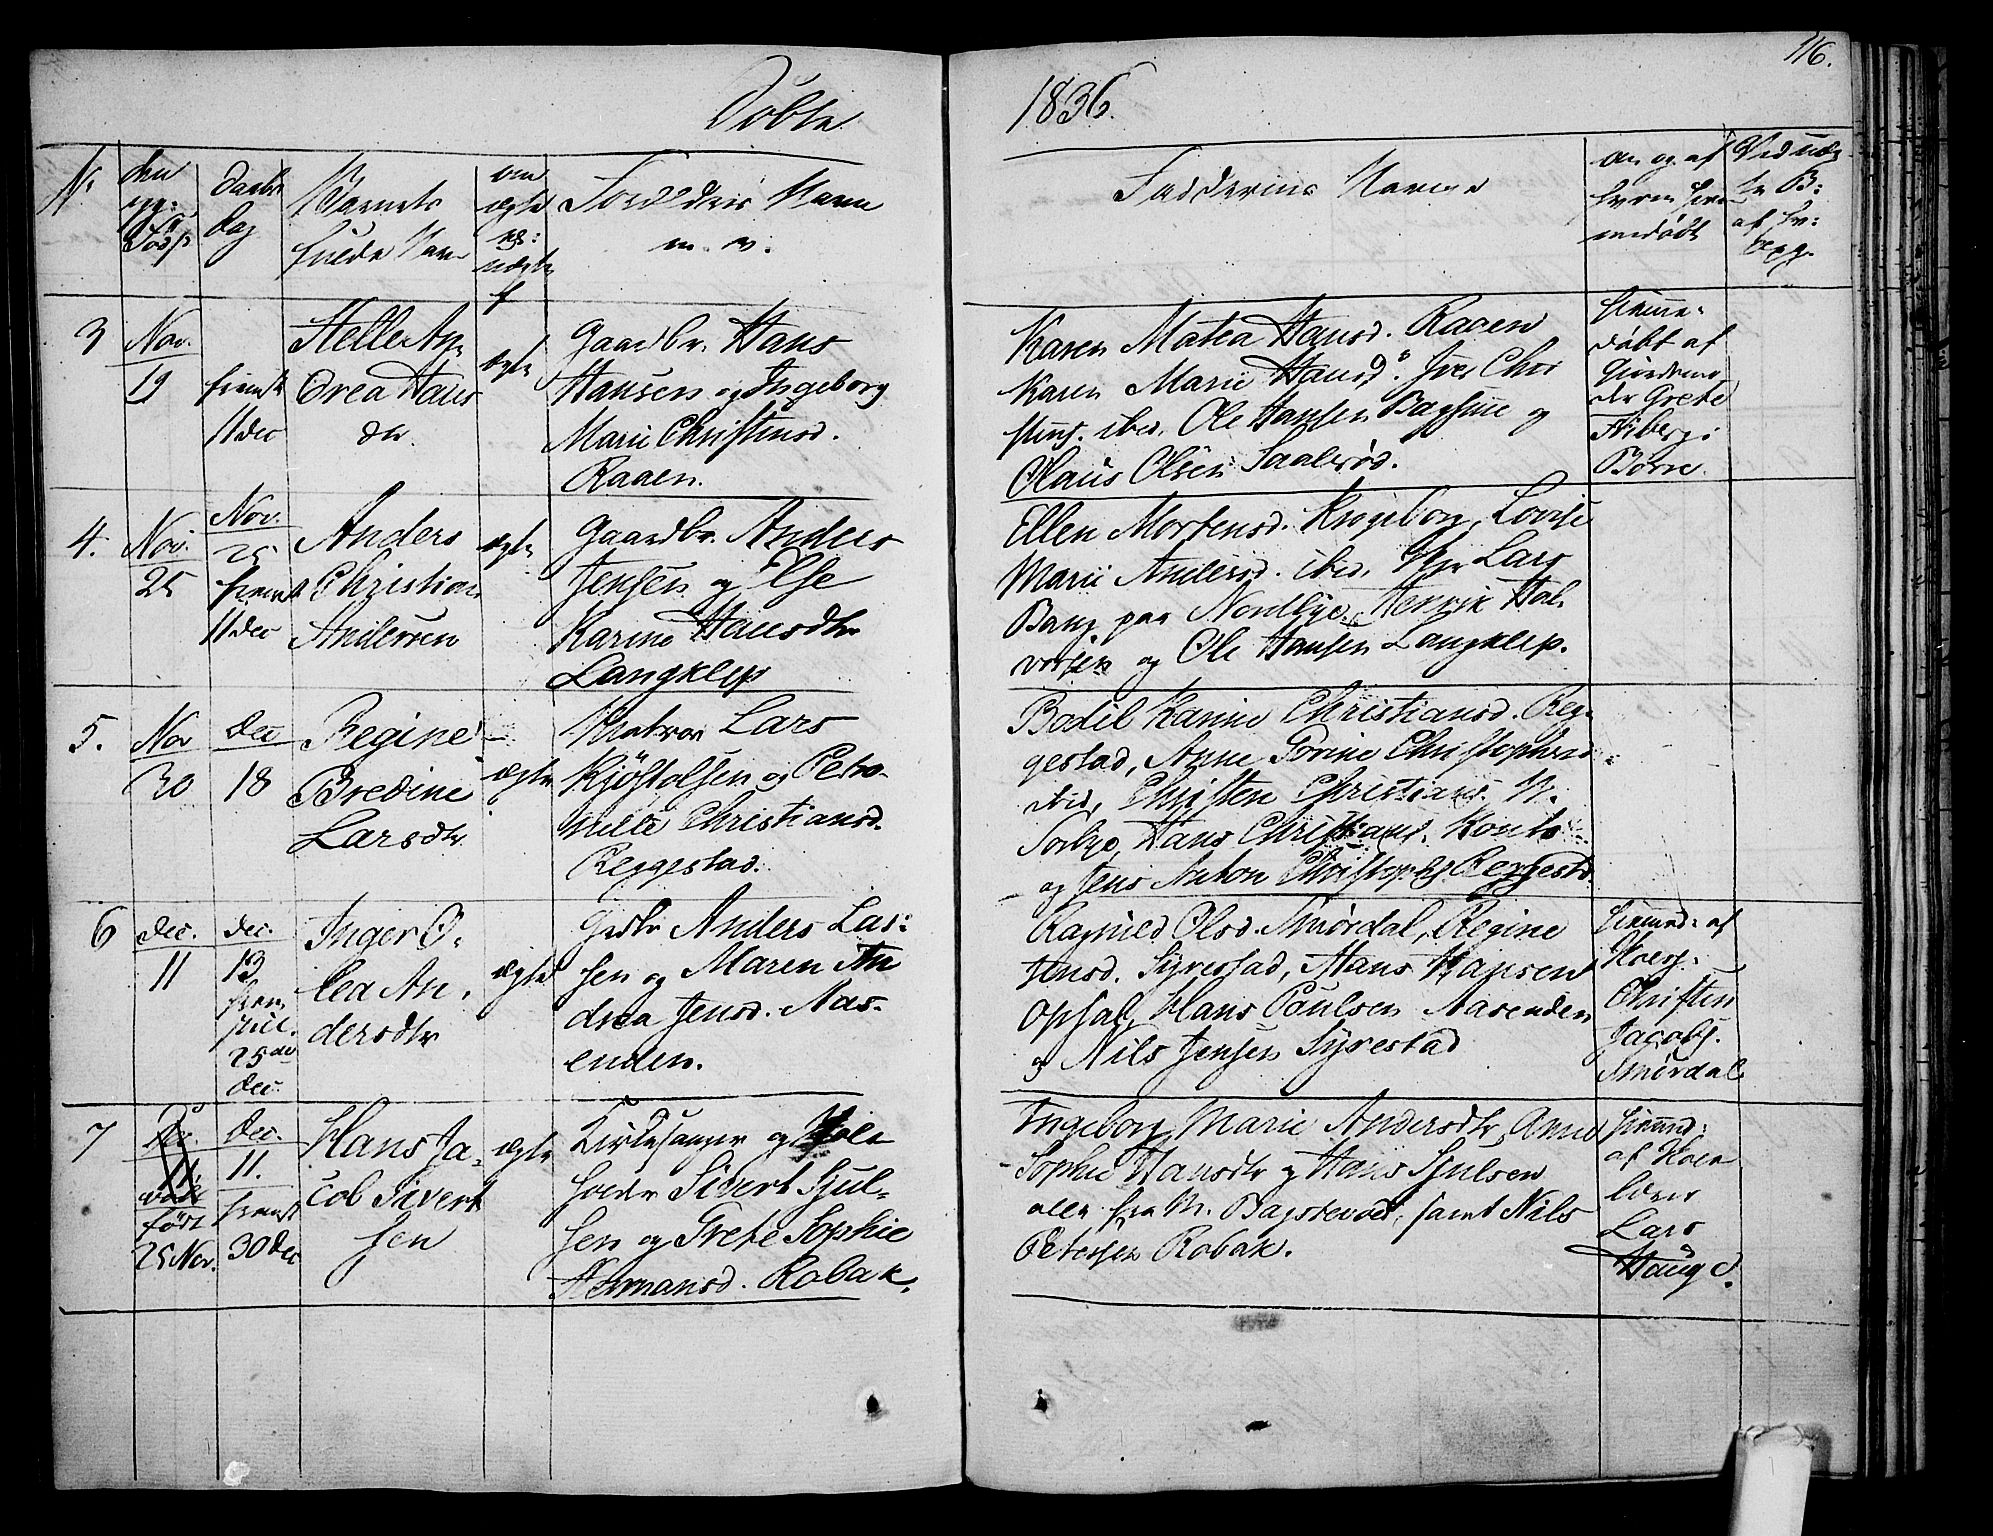 116.
Döbte 1836.
No
den
Födt
Daabs
dag
Barnets
fulde Navn
om
ægte
el:
uægte
Forældres Navn
m. v.
Faddernes Navne
om og af
hvem hjem
medöbt
3
Nov.
19
fremst
11 Dec
Helle An
drea Hans
dr.
ægte
Gaardbr. Hans
Hansen og Ingeborg
Marie Christensd.
Raaen.
Karen Matea Hansd. Raaen
Karen Marie Hansd. Iver Chri
stens. ibid. Ole Hansen og
Olaus Olsen
hjemme-
döbt af
Gjordemo
der Grete
Börre.
4.
Nov.
25
Nov.
25
fremst
11 Dec
Anders
Christian
Andersen
ægte
Gaardbr. Anders
Jensen og Else
Karine Hansdtr
Langklep
Ellen Mortensd. Krogeborg, Lovise
Marie Andersd. ibid, Lars
Bang paa Nordbye, Henrik Hal
vorsen og Ole Hansen Langklep.
5.
Nov
30
Dec
18
Regine
Bredine
Larsdtr
ægte
Lars
Kjöstolsen og Petro-
nille Christiansd.
Reggestad.
Bodil Karine Christiansd. Reg-
gestad, Anne Torine Christophersd
ibid, Christen Christians. N.
Torbye, Hans Christians.
og Jens Anton Christophs. Reggestd.
6
Dec.
11
Dec.
13
frem
stil.
25de
Dec.
Inger O-
lea An-
dersdtr
ægte
Grdbr Anders Lar-
sen og Maren An
drea Jensd. Aas-
enden.
Ragnild Olsd. Smördal, Regine
Jensd. Syrestad, Hans Hansen
Opsal, Hans Poulsen Aasenden
og Nils Jensen Syrestad
hjemd: af
Christen
Jacobs.
Smördal
7
Dec.
11
födt
25 Nov.
Dec.
11.
fremst
30 Dec
Hans Ja-
cob Sivert
sen
ægte
Kirkesanger og Skole
holdr Sivert Sjul-
sen og Grete Sophie
Hermansd. Robak.
Ingeborg Marie Andersdtr, Anne
Sophie Hansdtr og Hans Sjulsen
alle fra N. samt Nils
Petersen Robak.
hjemd:
af
Lars
Hauge.